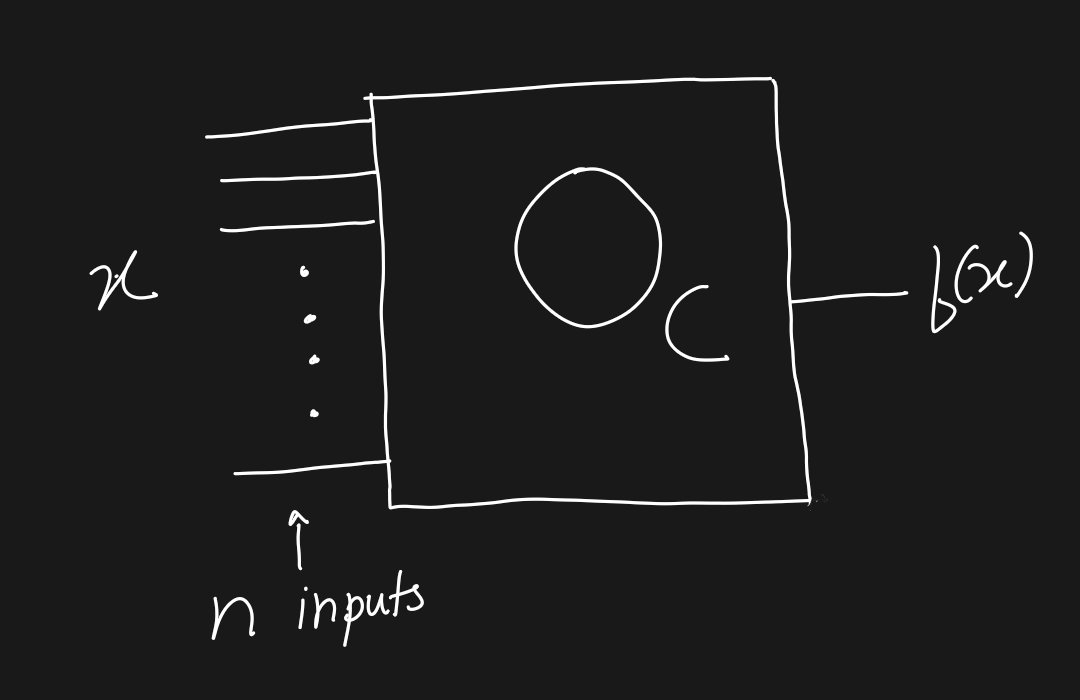 x
O
C
f(x)
n inputs